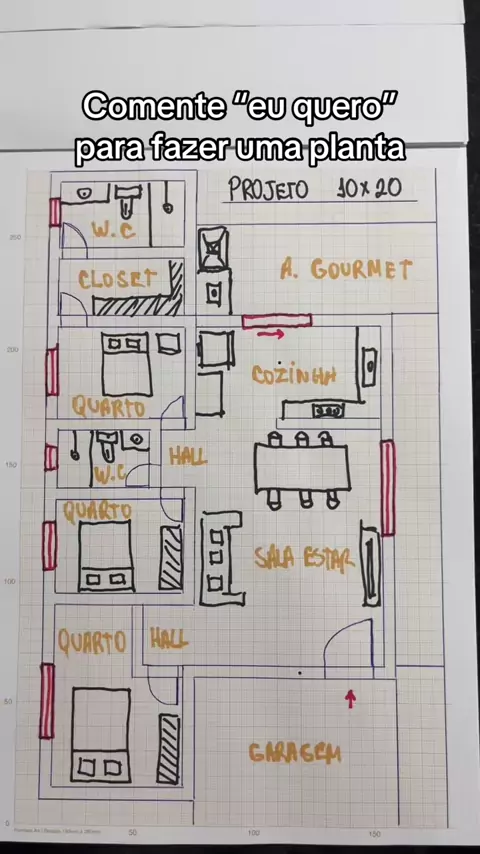 Comente “eu quero”
para fazer uma planta
PROJETO 10x20
W.C
CLOSET
A. GOURMET
QUARTO
COZINHA
HALL
W.C
QUARTO
SALA ESTAR
QUARTO
HALL
GARAGEM
250
200
150
100
50
0
50
100
150